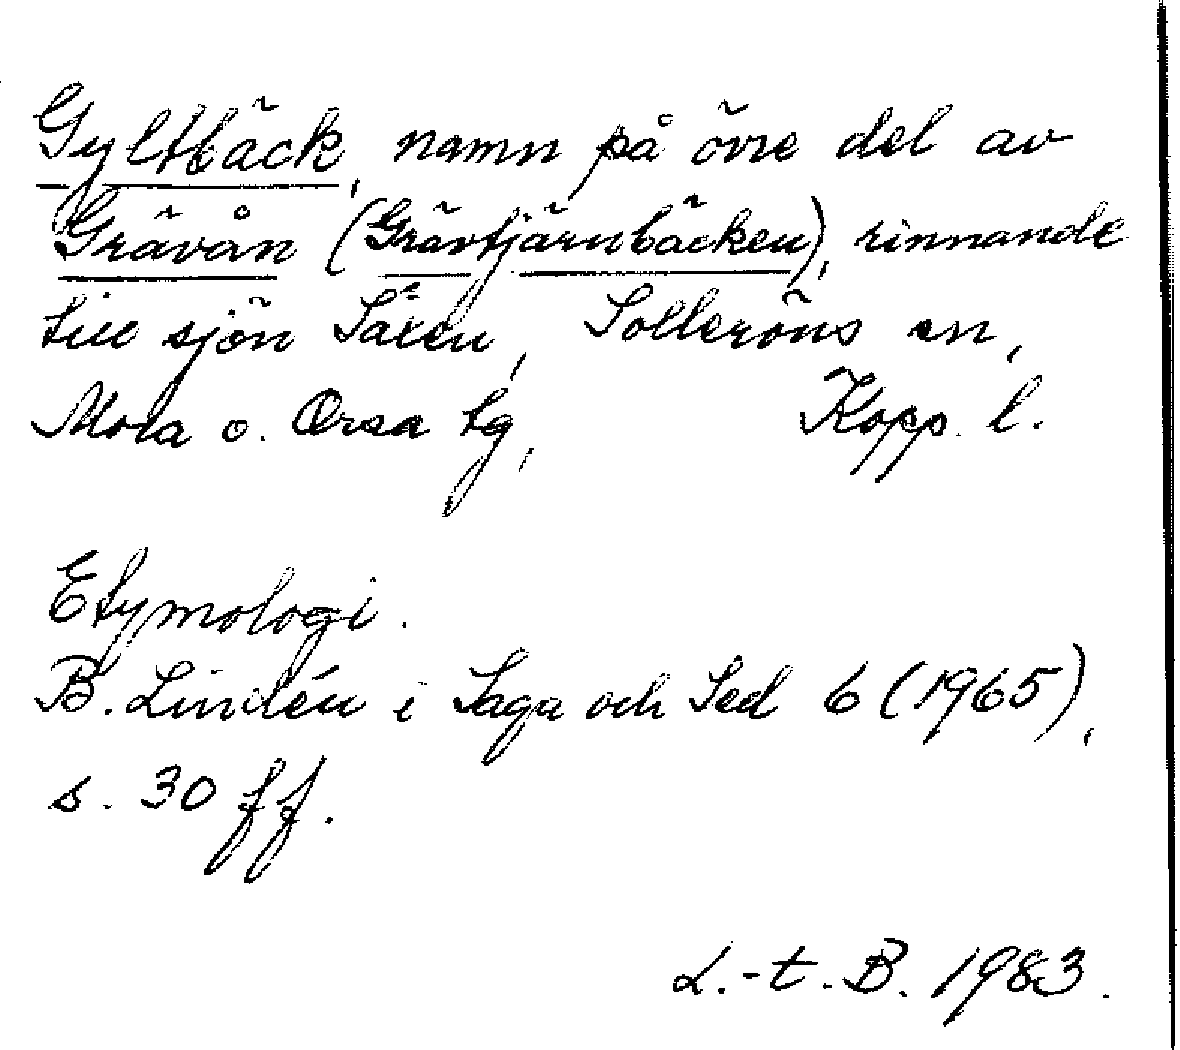 Gyltbäck, namn på övre del av
Grävån (Grävtjärnbäcken), rinnande
till sjön Säxen, Solleröns sn,
Mora o. Orsa tg, Kopp. l.
Etymologi.
B. Lindén i Saga och Sed 6 (1965),
s. 30 ff.
L.-t. B. 1983.